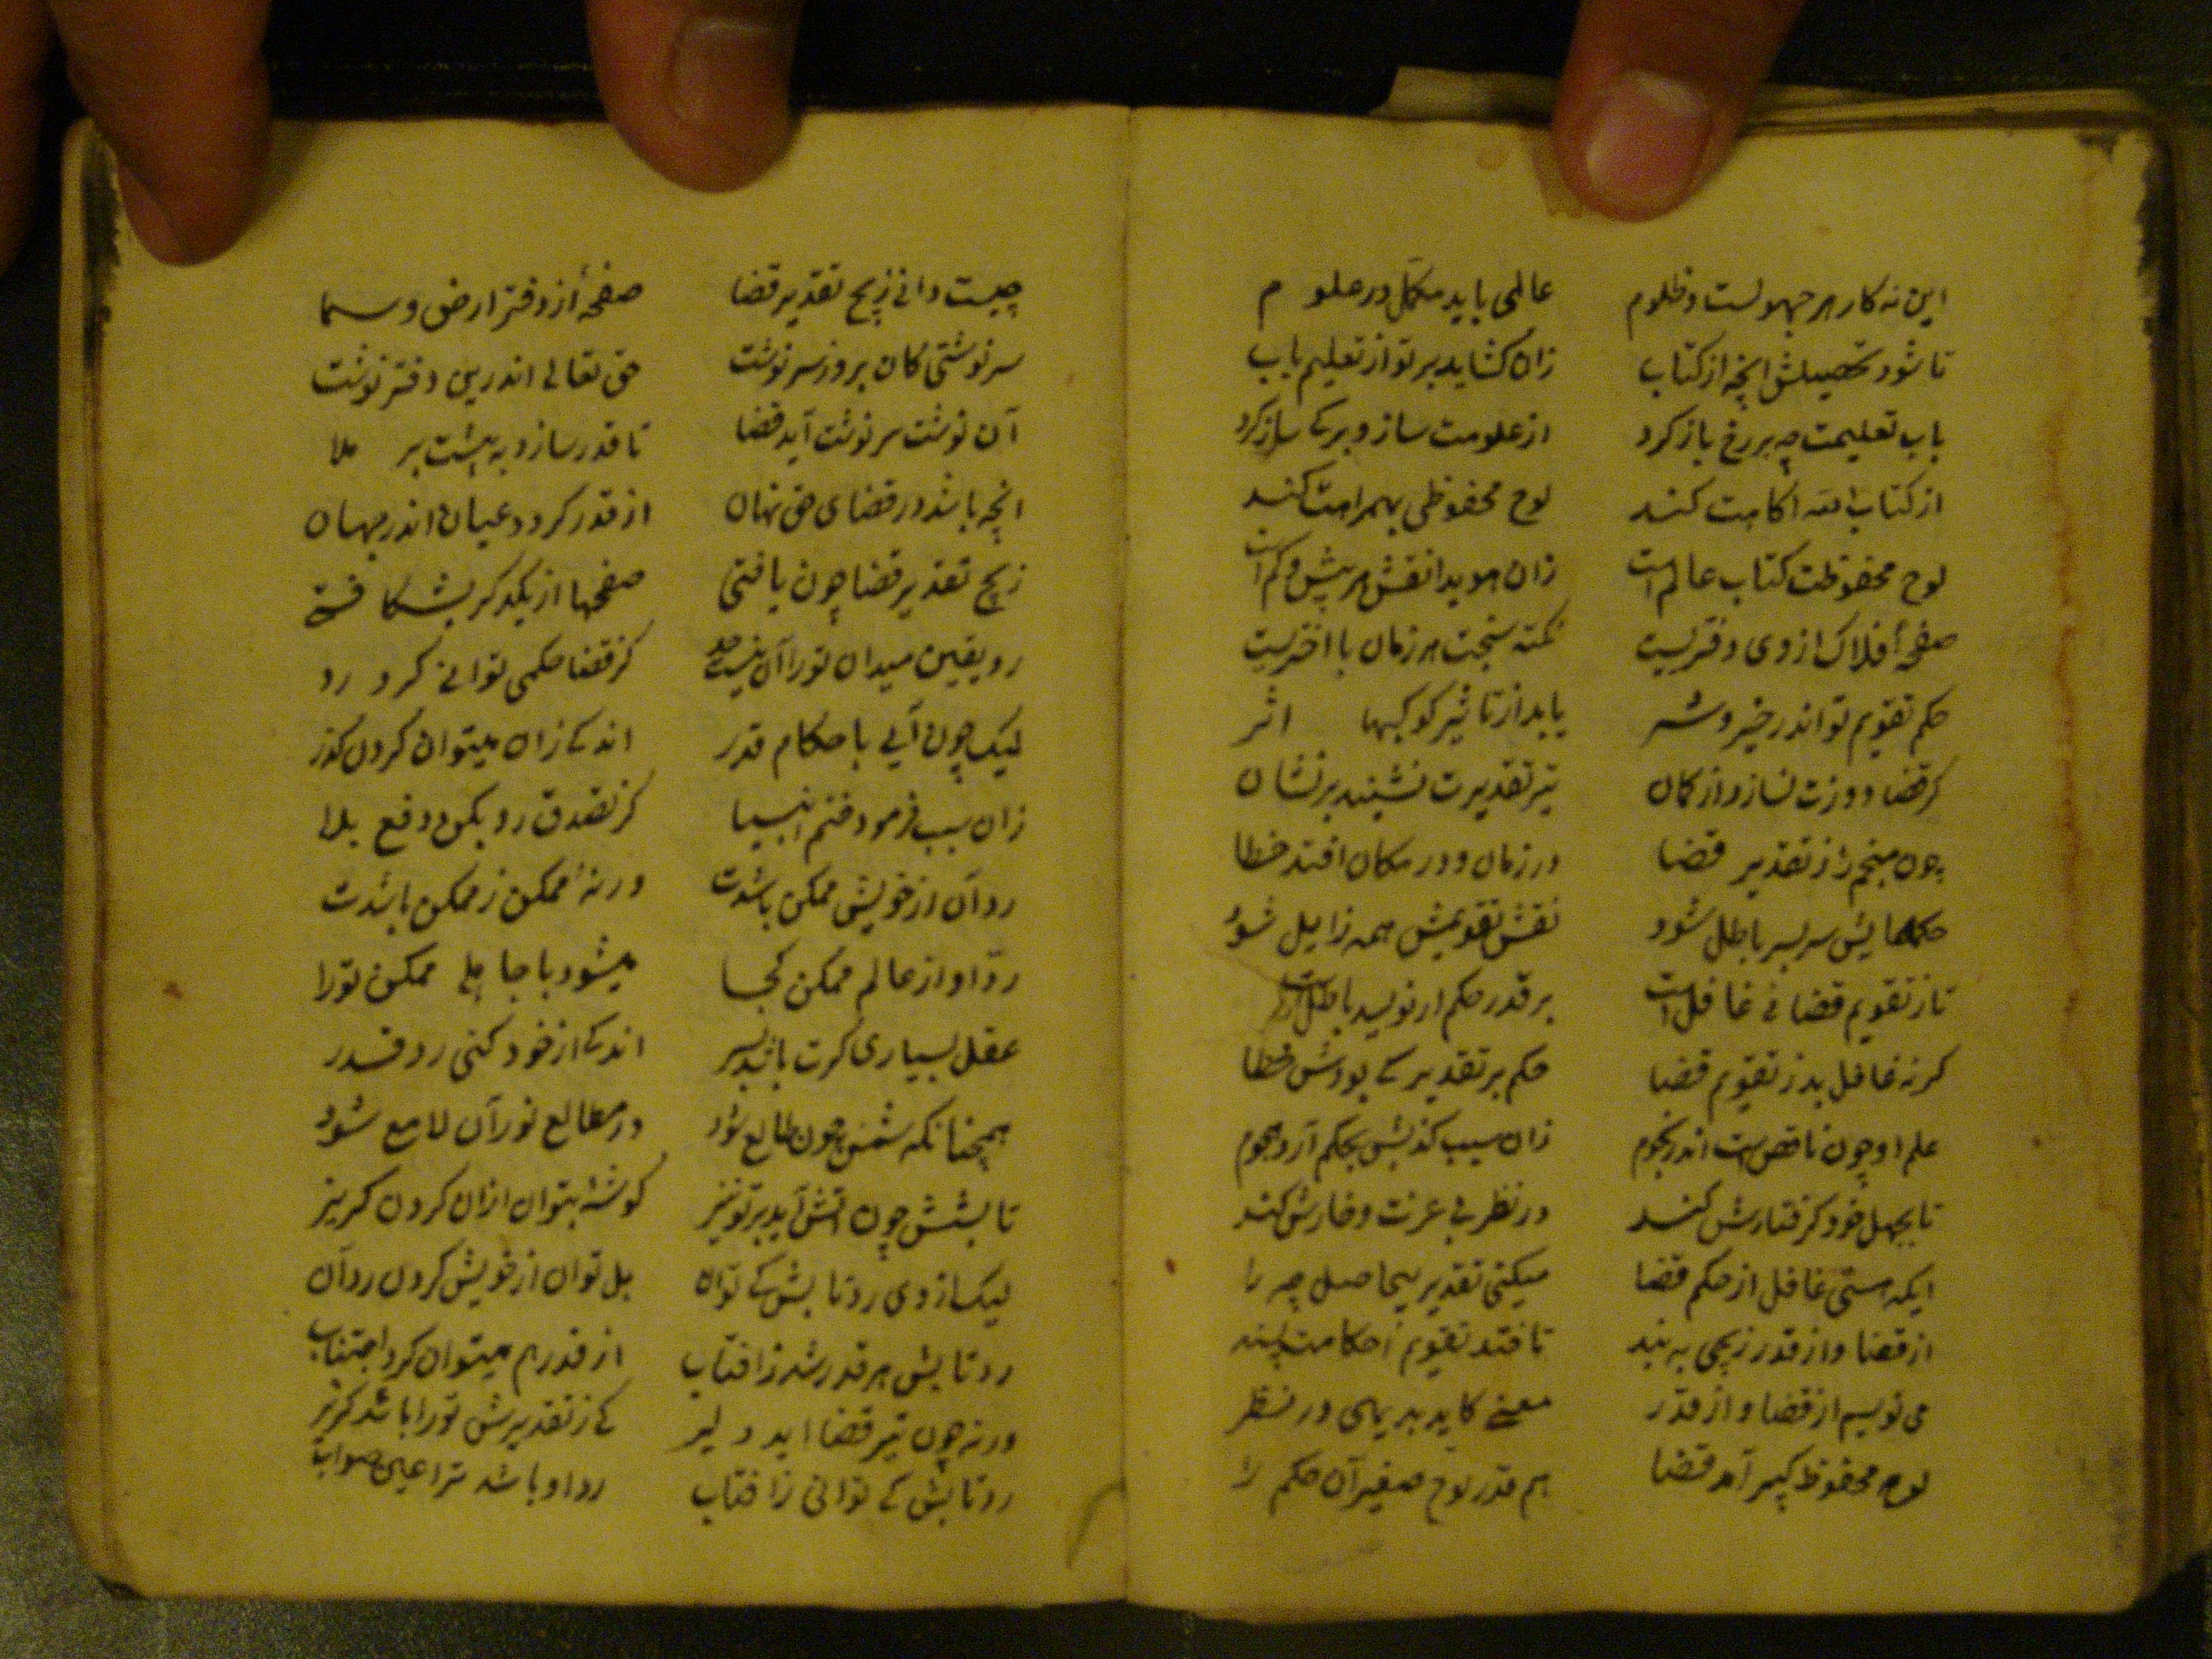 این نه کار هر جهولست و ظلوم عالمی باید مکمل در علوم
تا شود تحصیلش انچه از کتاب زان کشاید بر تو از تعلیم باب
باب تعلیمت چه بر رخ باز کرد از علومت ساز و برک ساز کرد
از کتاب الله اکاهت کند لوح محفوظی بهمراهت کند
لوح محفوظت کتاب عالم است زان هویدا نقش هر بیش و کم است
صفحهٔ افلاک از وی دفتریست نکته سنجت هر زمان با اختریست
حکم تقویم تو اندر خیر و شر یابد از تاثیر کوکبها اثر
کر قضا دوزت نسازد از کمان تیر تقدیرت نشیند بر نشان
چون منجم را ز تقدیر قضا در زمان و در مکان افتد خطا
حکمهایش سر بسر باطل شود نقش تقویمش همه زایل شود
تا ز تقویم قضا فی غافل است بر قدر حکم ار نویسد باطل است
کر نه غافل بد ز تقویم قضا حکم بر تقدیر کی بودش خطا
علم او چون ناقص است اندر نجوم زان سبب کذبش بحکم آرد هجوم
تا بجهل خود کرفتارش کند در نظر بی عزت و خارش کند
ایکه هستی غافل از حکم قضا میکنی تقدیر بیحاصل چه را
از قضا و از قدر زیچی به بند تا فتد تقویم احکامت پسند
می نویسم از قضا و از قدر معنی کاید بدیهای در نظر
لوح محفوظ کبیر آمد قضا هم قدر لوح صغیر آن حکم را
چیست دانی زیج تقدیر قضا صفحهٔ از دفتر ارض و سما
سرنوشتی کان بروز سرنوشت حق تعالی اندرین دفتر نوشت
آن نوشت سرنوشت آید قضا تا قدر سازد به پشت بر ملا
انچه باشد در قضای حق نهان از قدر کردد عیان اندر جهان
زیج تقدیر قضا چون یافتی صفحها از یکدکر بشکافتی
رو یقین میدان تو را آن نیست حد کز قضا حکمی توانی کرد رد
لیک چون آیی باحکام قدر اندکی زان میتوان کردن کذر
زان سبب فرمود ختم انبیا کز تصدق رد بکن دفع بلا
رد آن از خویش ممکن باشدت ور نه ممکن ز ممکن باشدت
رد او از عالم ممکن کجا میشود با جاهلی ممکن تورا
عقل بسیاری کرت باشد بسر اندکی از خود کنی رد قدر
همچنانکه شمس چون طالع شود در مطالع نور آن لامع شود
تابشش چون آتش آید بر تو نیز کوشهٔ بتوان ازان کردن کریز
لیک از وی رد تابش کی توان بل توان از خویش کردن رد آن
رد تابش هر قدر شد ز افتاب از قدر هم میتوان کرد اجتناب
ور نه چون تیر قضا اید دلیر کی ز تقدیرش تورا باشد کزیر
رد تابش کی توانی ز افتاب رد او باشد ترا عین صواب